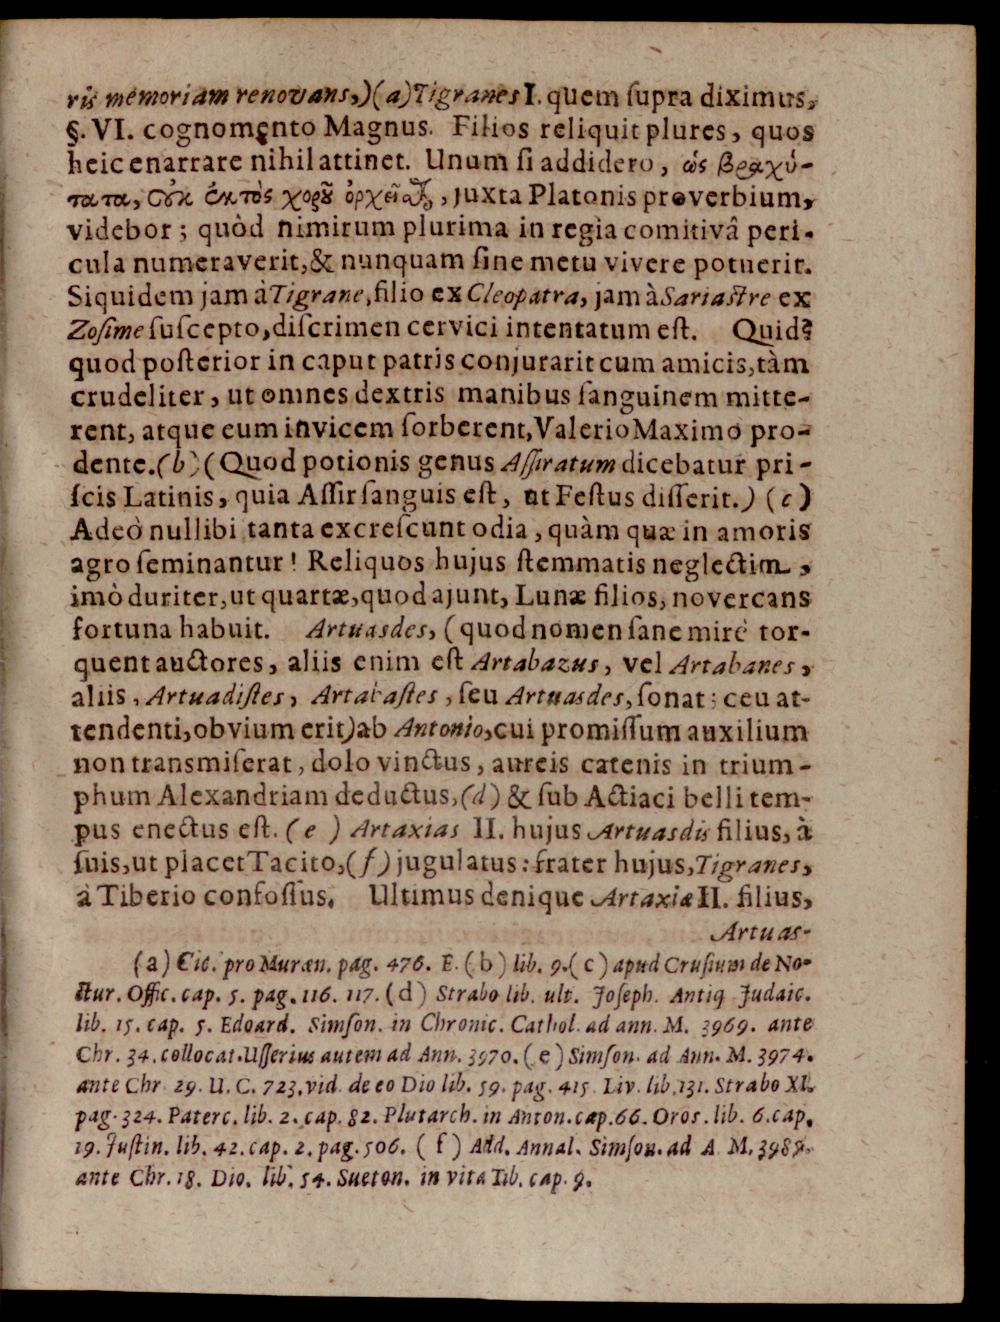 ris memoriam renovans,)(a)Tigranes I. quem ſupra diximus,
§. VI. cognomento Magnus. Filios reliquit plures, quos
heic enarrare nihil attinet. Unum ſi addidero, ὡς βραχύ-
τατα, οὐκ ἐκτὸς χοροῦ ὀρχεῖσθαι, juxta Platonis proverbium,
videbor; quòd nimirum plurima in regia comitivâ peri-
cula numeraverit,& nunquam ſine metu vivere potuerit.
Siquidem jam à Tigrane, filio ex Cleopatra, jam à Sariaſtre ex
Zoſime ſuſcepto, diſcrimen cervici intentatum eſt. Quid?
quod poſterior in caput patris conjurarit cum amicis, tàm
crudeliter, ut omnes dextris manibus ſanguinem mitte-
rent, atque eum invicem ſorberent, Valerio Maximo pro-
dente.(b)(Quod potionis genus Aſſiratum dicebatur pri-
ſcis Latinis, quia Aſſir ſanguis eſt, ut Feſtus diſſerit.) (c)
Adeò nullibi tanta excreſcunt odia, quàm quæ in amoris
agro ſeminantur! Reliquos hujus ſtemmatis neglectim,
imò duriter, ut quartæ, quod ajunt, Lunæ filios, novercans
fortuna habuit. Artuasdes, (quod nomen ſane mirè tor-
quent auctores, aliis enim eſt Artabazus, vel Artabanes,
aliis, Artuadiſtes, Artabaſtes, ſeu Artuasdes, ſonat; ceu at-
tendenti, obvium erit) ab Antonio, cui promiſſum auxilium
non transmiſerat, dolo vinctus, aureis catenis in trium-
phum Alexandriam deductus,(d) & ſub Actiaci belli tem-
pus enectus eſt. (e) Artaxias II. hujus Artuasdis filius, à
ſuis, ut placet Tacito,(f) jugulatus: frater hujus, Tigranes,
à Tiberio confoſſus. Ultimus denique Artaxiæ II. filius,
Artuas-
(a) Cic. pro Muræn. pag. 476. E. (b) lib. 9.(c) apud Cruſium de No-
ctur. Offic. cap. 5. pag. 116. 117. (d) Strabo lib. ult. Joſeph. Antiq Judaic.
lib. 15. cap. 5. Edoard. Simſon. in Chronic. Cathol. ad ann. M. 3969. ante
Chr. 34. collocat. Uſſerius autem ad Ann. 3970. (e) Simſon. ad Ann. M. 3974.
ante Chr 29. U. C. 723. vid. de eo Dio lib. 59. pag. 415 Liv. lib. 131. Strabo XI.
pag. 324. Paterc. lib. 2. cap. 82. Plutarch. in Anton. cap. 66. Oros. lib. 6. cap.
19. Juſtin. lib. 42. cap. 2. pag. 506. (f) Add. Annal. Simſon. ad A M. 3985.
ante Chr. 18. Dio. lib. 54. Sueton. in vita Tib. cap. 9.